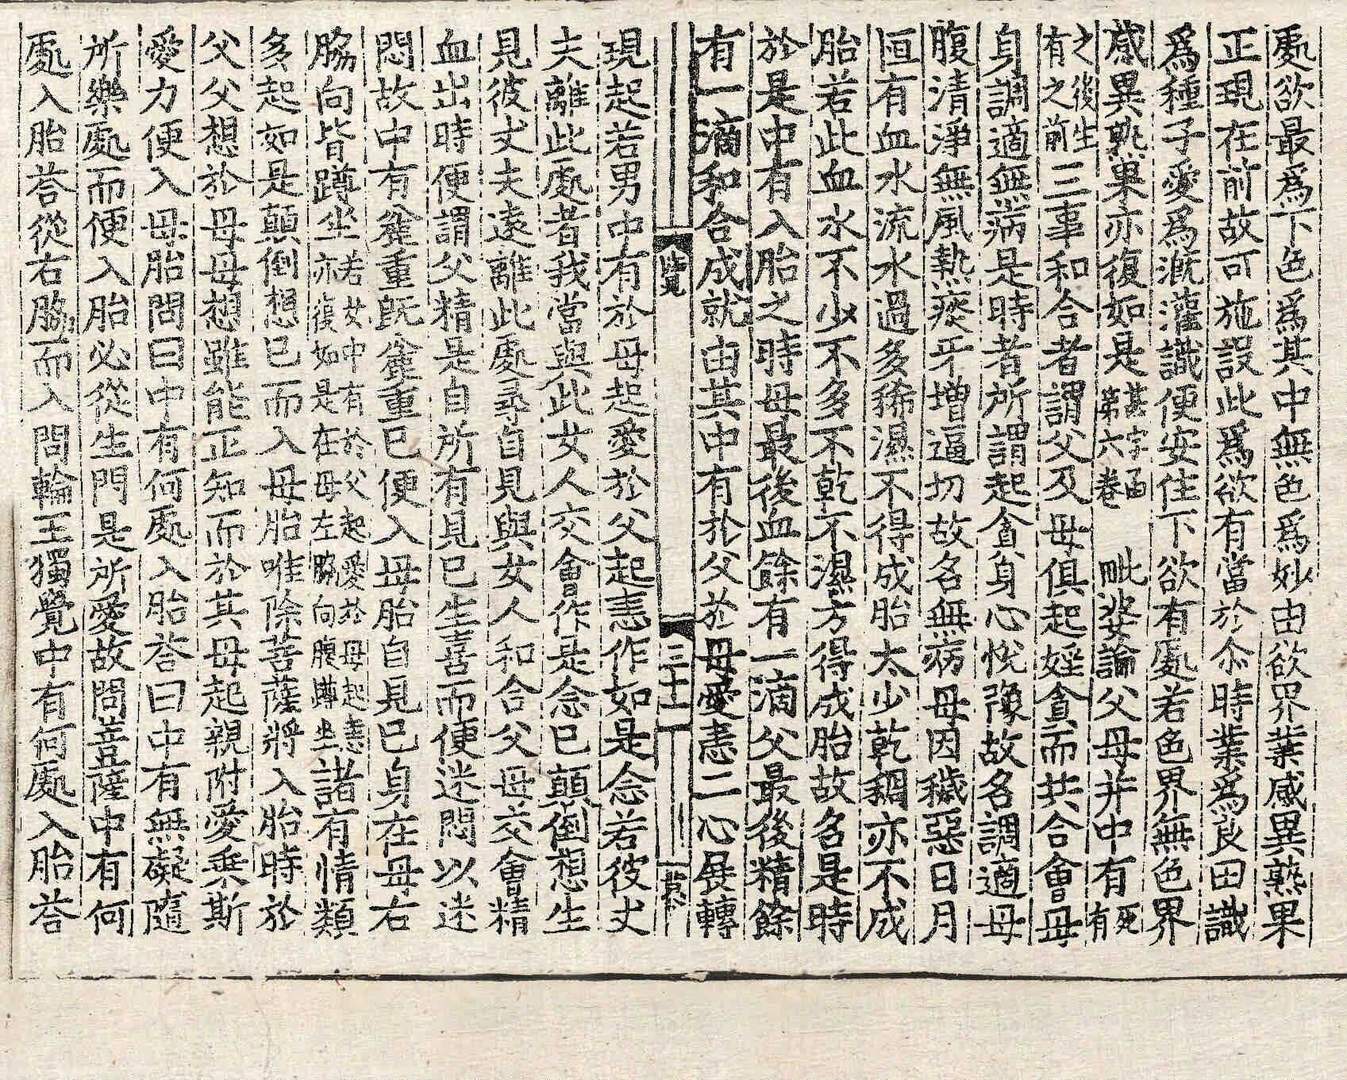 處欲最爲下色爲其中無色爲妙由欲界業感異熟果
正現在前故可施設此爲欲有當於尒時業爲良田識
爲種子愛爲漑灌識便安住下欲有處若色界無色界
感異熟果亦復如是甚字函第六卷 毗婆論父母并中有死有
之後生有之前三事和合者謂父及母俱起婬貪而共合會母
身調適無病是時者所謂起貪身心悅豫故名調適母
腹淸淨無風熱痰牙增逼切故名無病母因穢惡日月
恒有血水流水過多稀濕不得成胎太少乾稠亦不成
胎若此血水不少不多不乾不濕方得成胎故名是時
於是中有入胎之時母最後血餘有一滴父最後精餘
有一滴和合成就由其中有於父於母愛恚二心展轉
覽 三十二
現起若男中有於母起愛於父起恚作如是念若彼丈
夫離此處者我當與此女人交會作是念已顚倒想生
見彼丈夫遠離此處尋自見與女人和合父母交會精
血出時便謂父精是自所有見已生喜而便迷悶以迷
悶故中有麁重旣麁重已便入母胎自見已身在母右
脇向背蹲坐若女中有於父起愛於母起恚亦復如是在母左脇向腹蹲坐諸有情類
多起如是顚倒想已而入母胎唯除菩薩將入胎時於
父父想於母母想雖能正知而於其母起親附愛乘斯
愛力便入母胎問曰中有何處入胎荅曰中有無礙隨
所樂處而便入胎必從生門是所愛故問菩薩中有何
處入胎荅從右脇而入問輪王獨覺中有何處入胎荅